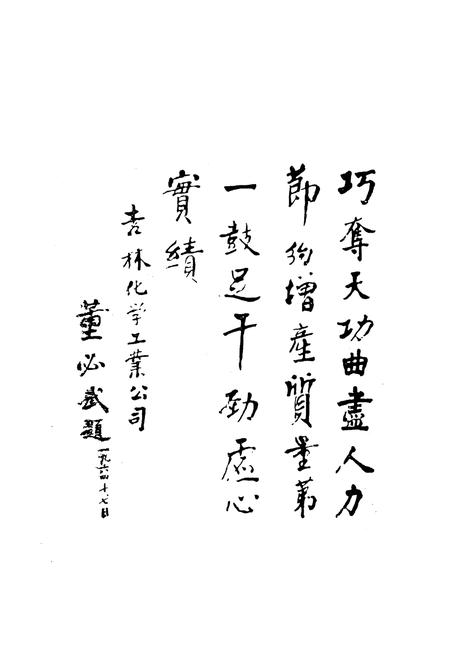 巧奪天功曲盡人力
節約增產質量第
一鼓足干劲虛心
實績
吉林化学工業公司
董必武題
一九六四十七日